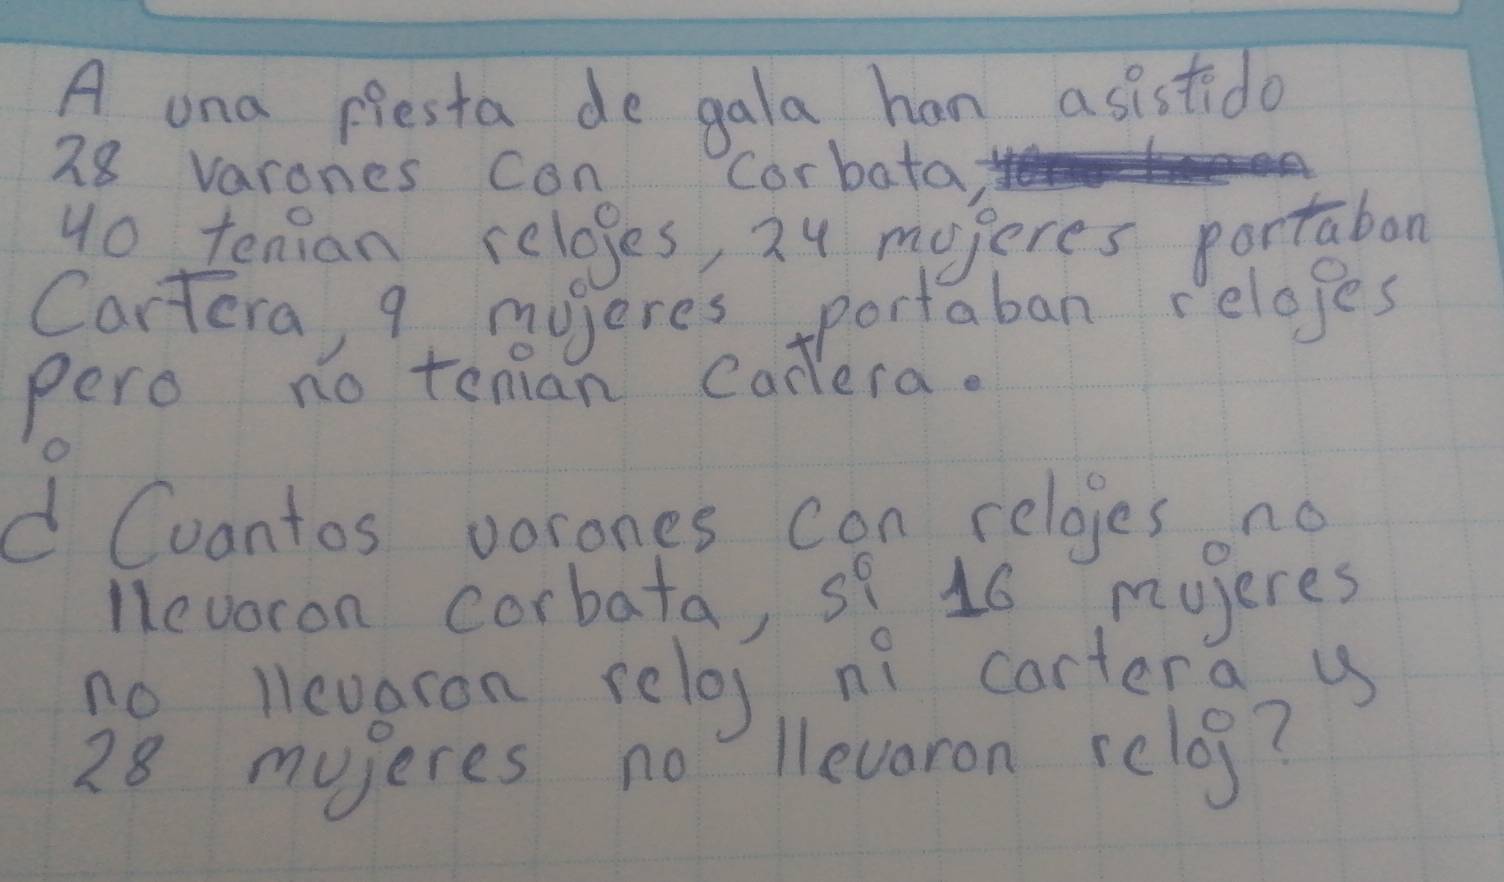 A una fiesta de gala han asistido
28 varones con corbata,
40 tenian relojes, 24 mujeres portaban
Cartera, 9 mujeres portaban relojes
pero no tenian cartera.
¿Cuantos varones con relojes no
llevaron corbata, si 16 mujeres
no llevaron reloj ni cartera y
28 mujeres no llevaron reloj?